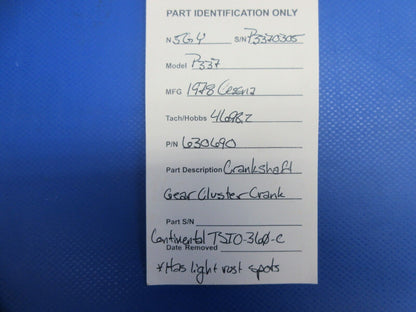 PART IDENTIFICATION ONLY
N 5GY S/N P3370305
Model P337
MFG 1978 Cessna
Tach/Hobbs
P/N 630690
Part Description Crankshaft
Gear Cluster Crank
Part S/N
Continental TSIO-360-C
Date Removed
*Has light rust spots